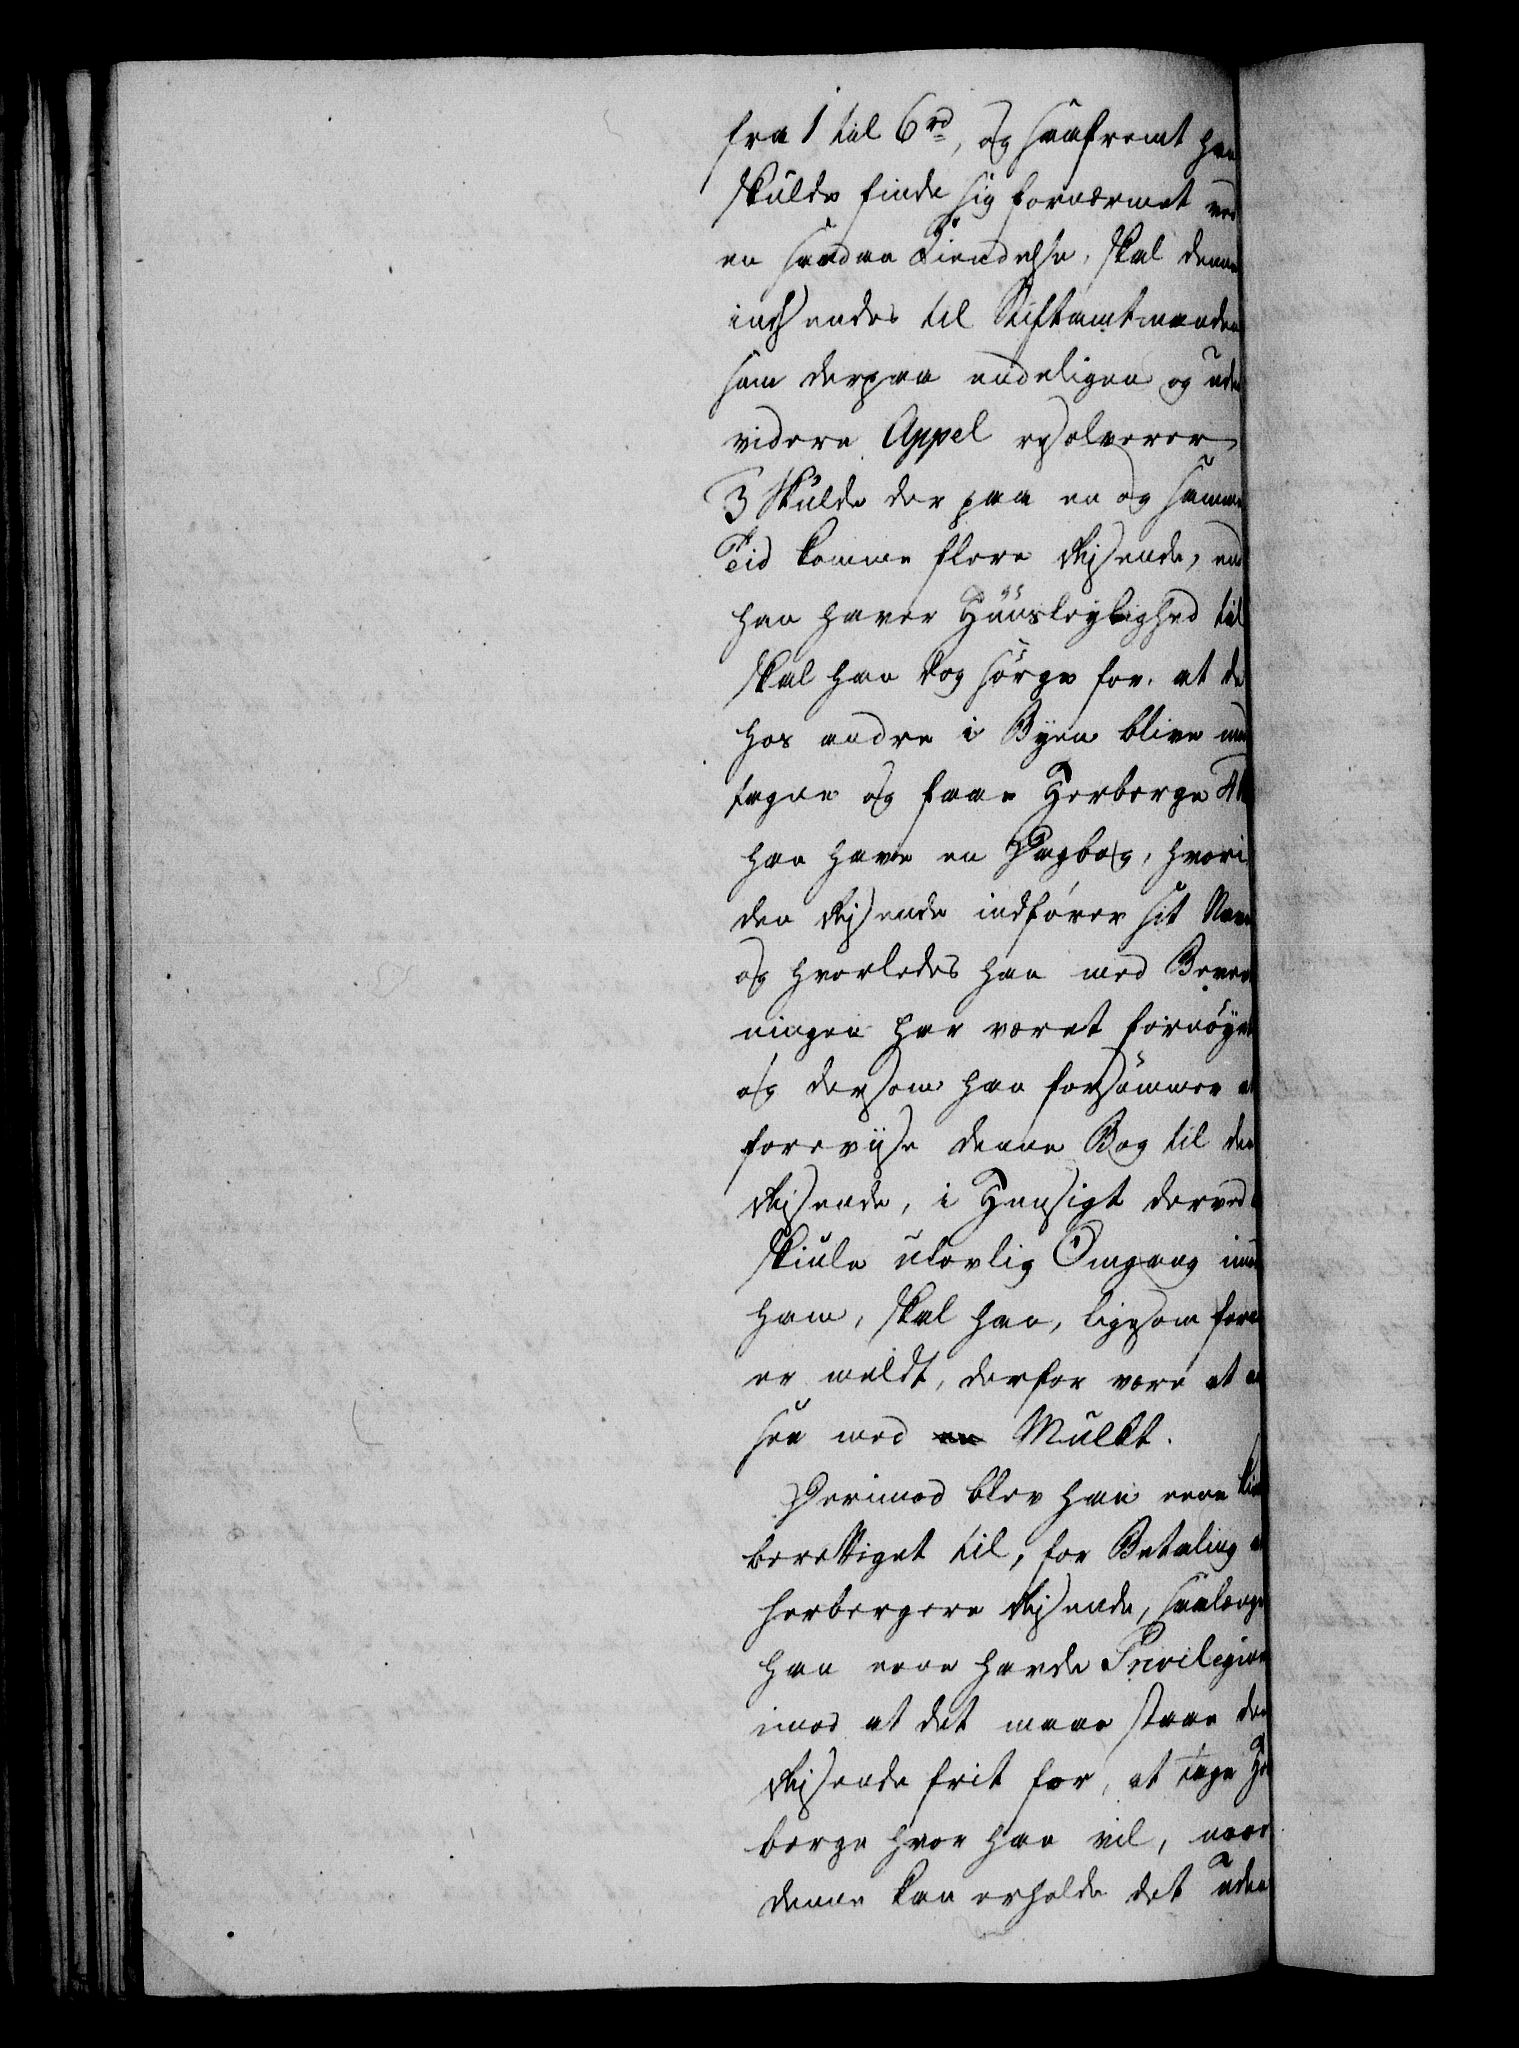 fra 1 til 6rd, og saafremt han
skulde finde sig fornærmet ved
en saadan Kiendelse, skal denne
indsendes til Stiftamtmanden
som derpaa endeligen og uden
videre Appel resolverer
3 Skulde der paa en og samme
Tid komme flere Reisende, end
han haver Huusleylighed til
skal han dog sörge for, at de
hos andre i Byen blive mod
tagne og faae Herberge 4
han have en Dagbog, hvori
den Reisende indfører sit Navn
og hvorledes han med Bevert
ningen har været fornöyet
og dersom han forsömmer at
foreviise denne Bog til den
Reisende, i Hensigt derved
skiule ulovlig Omgang imod
ham, skal han, ligesom foran
er meldt, derfor være at an
see med Mulkt.
Derimod blev han eene
berettiget til, for Betaling at
herbergere Reisende, saalænge
han eene havde Privilegium
imod at det maae staae den
Reisende frit for, at tage Her
berge hvor han vil, naar
denne kan erholde det uden